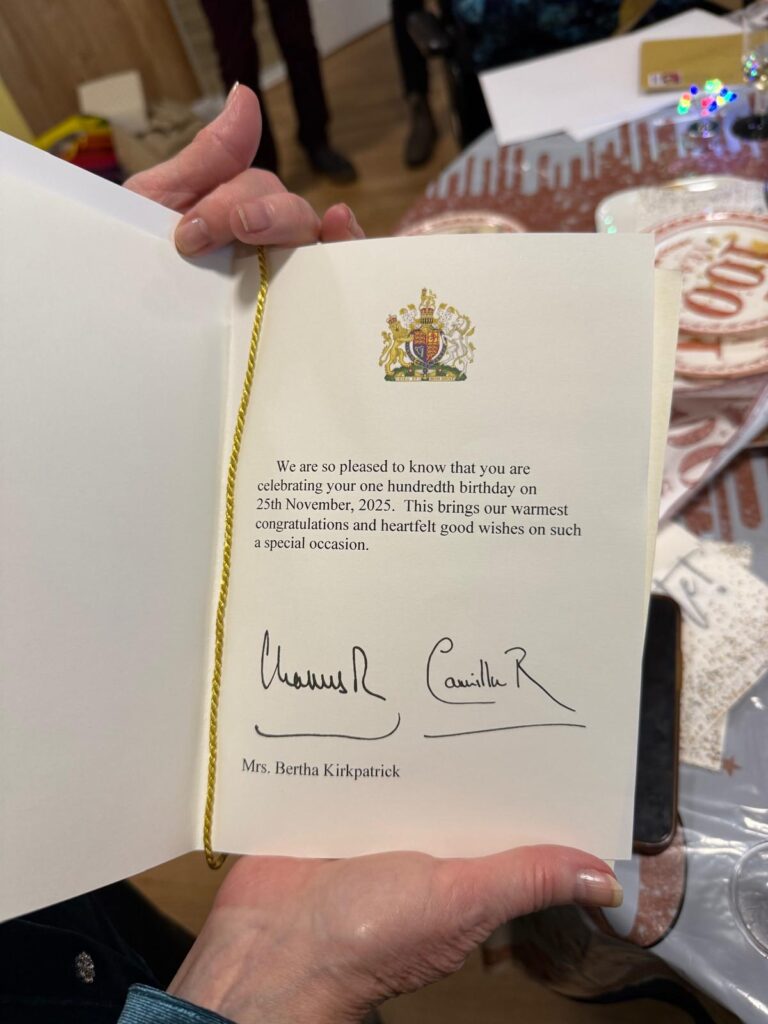 We are so pleased to know that you are
celebrating your one hundredth birthday on
25th November, 2025. This brings our warmest
congratulations and heartfelt good wishes on such
a special occasion.
Charles R
Camilla R
Mrs. Bertha Kirkpatrick
100!